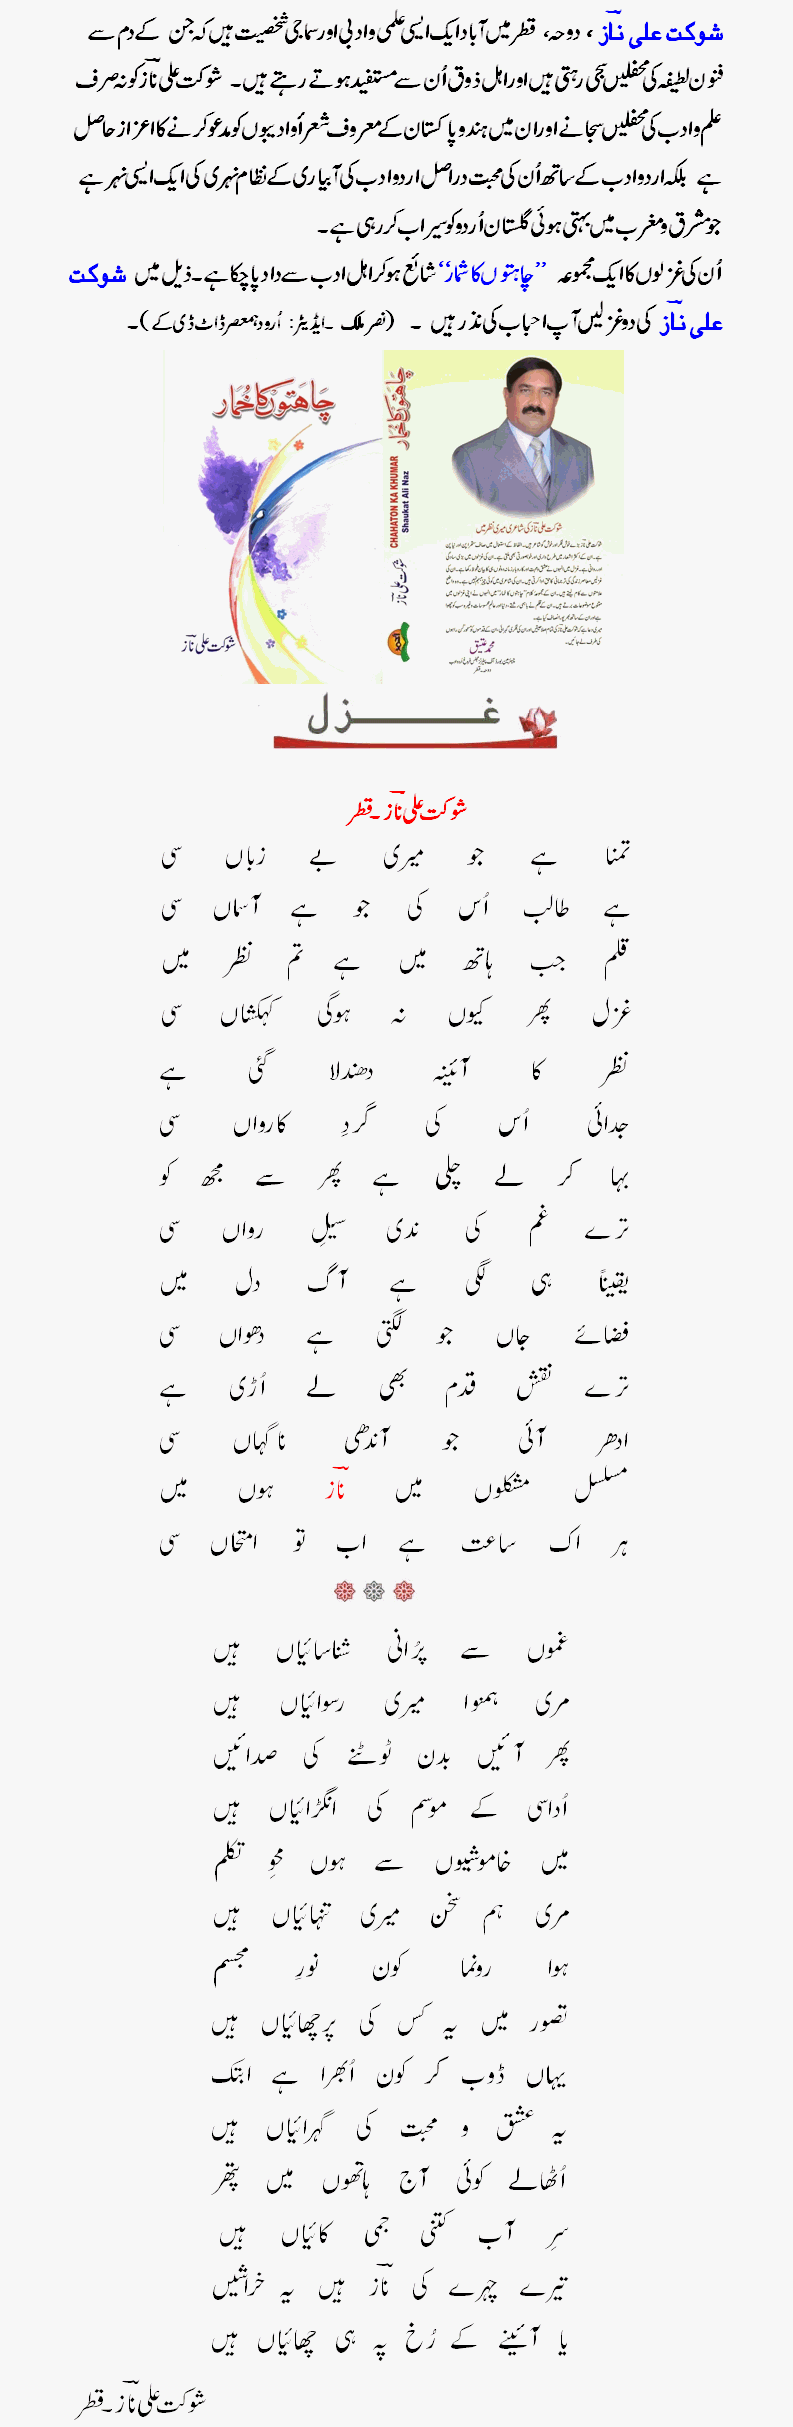 شوکت علی نازؔ ، دوحہ، قطر میں آباد ایک ایسی علمی و ادبی اور سماجی شخصیت ہیں کہ جن کے دم سے
فنون لطیفہ کی محفلیں سجی رہتی ہیں اور اہل ذوق اُن سے مستفید ہوتے رہتے ہیں۔ شوکت علی نازؔ کو نہ صرف
علم و ادب کی محفلیں سجانے اور ان میں ہند و پاکستان کے معروف شعرأ و ادیبوں کو مدعو کرنے کا اعزاز حاصل
ہے بلکہ اردو ادب کے ساتھ اُن کی محبت دراصل اردو ادب کی آبیاری کے نظام نہری کی ایک ایسی نہر ہے
جو مشرق و مغرب میں بہتی ہوئی گلستان اُردو کو سیراب کر رہی ہے۔
اُن کی غزلوں کا ایک مجموعہ ’’چاہتوں کا خمار‘‘ شائع ہو کر اہل ادب سے داد پا چکا ہے۔ ذیل میں شوکت
علی نازؔ کی دو غزلیں آپ احباب کی نذر ہیں ۔ (نصر ملک ۔ ایڈیٹر: اُردو ہمعصر ڈاٹ ڈی کے)۔
چاہتوں کا خُمار
شوکت علی نازؔ
چاہتوں کا خُمار
CHAHATON KA KHUMAR
Shaukat Ali Naz
شوکت علی نازؔ
شوکت علی نازؔ کی شاعری میری نظر میں
محمد عتیق
دوحہ۔ قطر
غزل
شوکت علی نازؔ ۔ قطر
تمنا ہے جو میری بے زباں سی
ہے طالب اُس کی جو ہے آسماں سی
قلم جب ہاتھ میں ہے تم نظر میں
غزل پھر کیوں نہ ہوگی کہکشاں سی
نظر کا آئینہ دھندلا گئی ہے
جدائی اُس کی گردِ کارواں سی
بہا کر لے چلی ہے پھر سے مجھ کو
ترے غم کی ندی سیلِ رواں سی
یقیناً ہی لگی ہے آگ دل میں
فضائے جاں جو لگتی ہے دھواں سی
ترے نقش قدم بھی لے اُڑی ہے
ادھر آئی جو آندھی ناگہاں سی
مسلسل مشکلوں میں نازؔ ہوں میں
ہر اک ساعت ہے اب تو امتحاں سی
غموں سے پرُانی شناسائیاں ہیں
مری ہمنوا میری رسوائیاں ہیں
پھر آئیں بدن ٹوٹنے کی صدائیں
اُداسی کے موسم کی انگڑائیاں ہیں
میں خاموشیوں سے ہوں محوِ تکلم
مری ہم سخن میری تنہائیاں ہیں
ہوا رونما کون نورِ مجسم
تصور میں یہ کس کی پرچھائیاں ہیں
یہاں ڈوب کر کون اُبھرا ہے ابتک
یہ عشق و محبت کی گہرائیاں ہیں
اُٹھالے کوئی آج ہاتھوں میں پتھر
سرِ آب کتنی جمی کائیاں ہیں
تیرے چہرے کی نازؔ ہیں یہ خراشیں
یا آئینے کے رُخ پہ ہی چھائیاں ہیں
شوکت علی نازؔ ۔ قطر